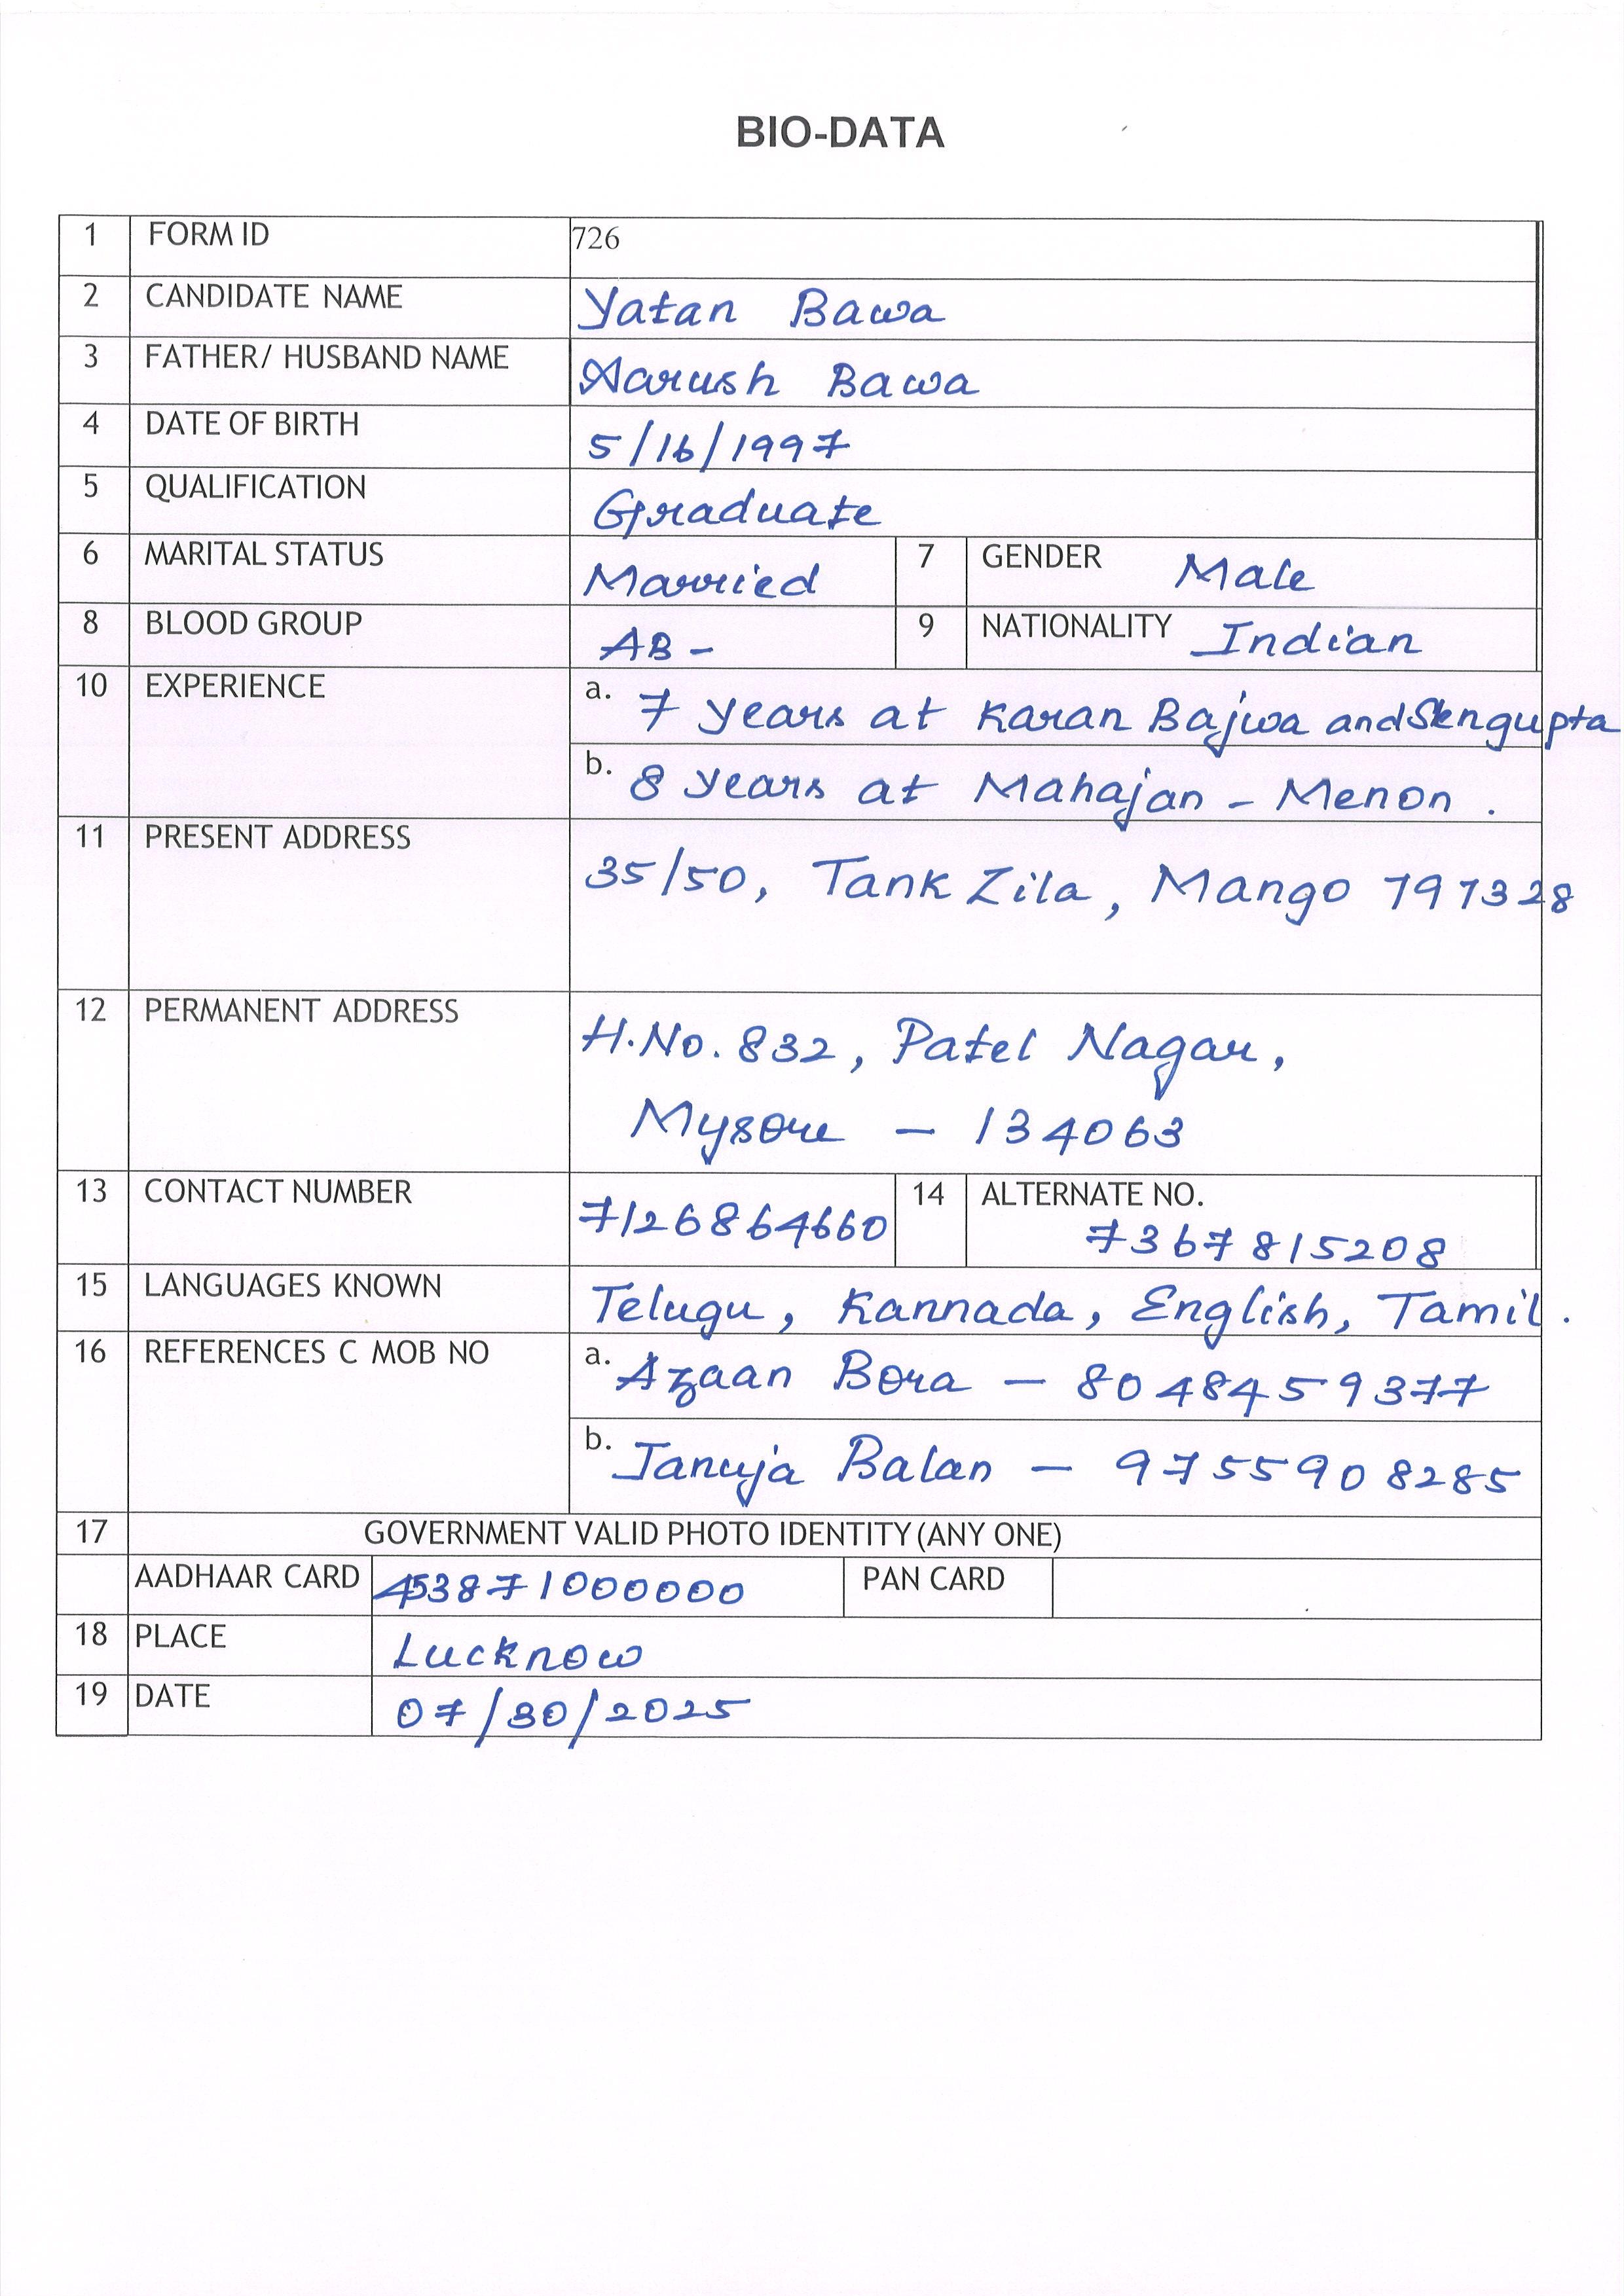 BIO-DATA
1 FORM ID 726
2 CANDIDATE NAME Yatan Bawa
3 FATHER/ HUSBAND NAME Aarush Bawa
4 DATE OF BIRTH 5/16/1997
5 QUALIFICATION Graduate
6 MARITAL STATUS Married 7 GENDER Male
8 BLOOD GROUP AB- 9 NATIONALITY Indian
10 EXPERIENCE a. 7 years at Karan Bajwa and Sengupta
b. 8 years at Mahajan - Menon .
11 PRESENT ADDRESS 35/50, Tank Zila, Mango 797328
12 PERMANENT ADDRESS H.No. 832, Patel Nagar,
Mysore - 134063
13 CONTACT NUMBER 7126864660 14 ALTERNATE NO.
7367815208
15 LANGUAGES KNOWN Telugu, Kannada, English, Tamil.
16 REFERENCES C MOB NO a. Azaan Bora - 8048459377
b. Tanuja Balan - 9755908285
17 GOVERNMENT VALID PHOTO IDENTITY (ANY ONE)
AADHAAR CARD 453871000000 PAN CARD
18 PLACE Lucknow
19 DATE 07/30/2025